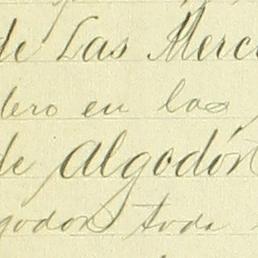 de Las Merc
dero en las
de Algodón
godon toda